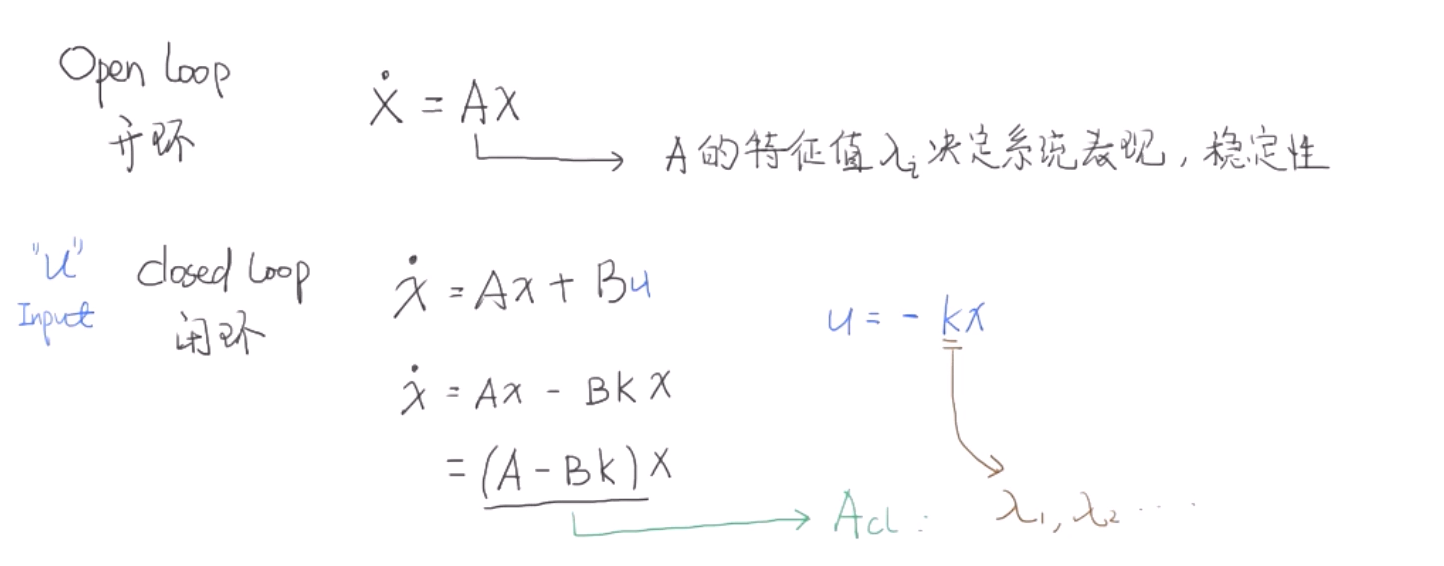 Open loop
开环
ẋ = Ax
A的特征值λᵢ决定系统表现，稳定性
"u"
Input
closed loop
闭环
ẋ = Ax + Bu
u = - kx
ẋ = Ax - Bk x
= (A - Bk) x
Acl :
λ₁, λ₂ ····